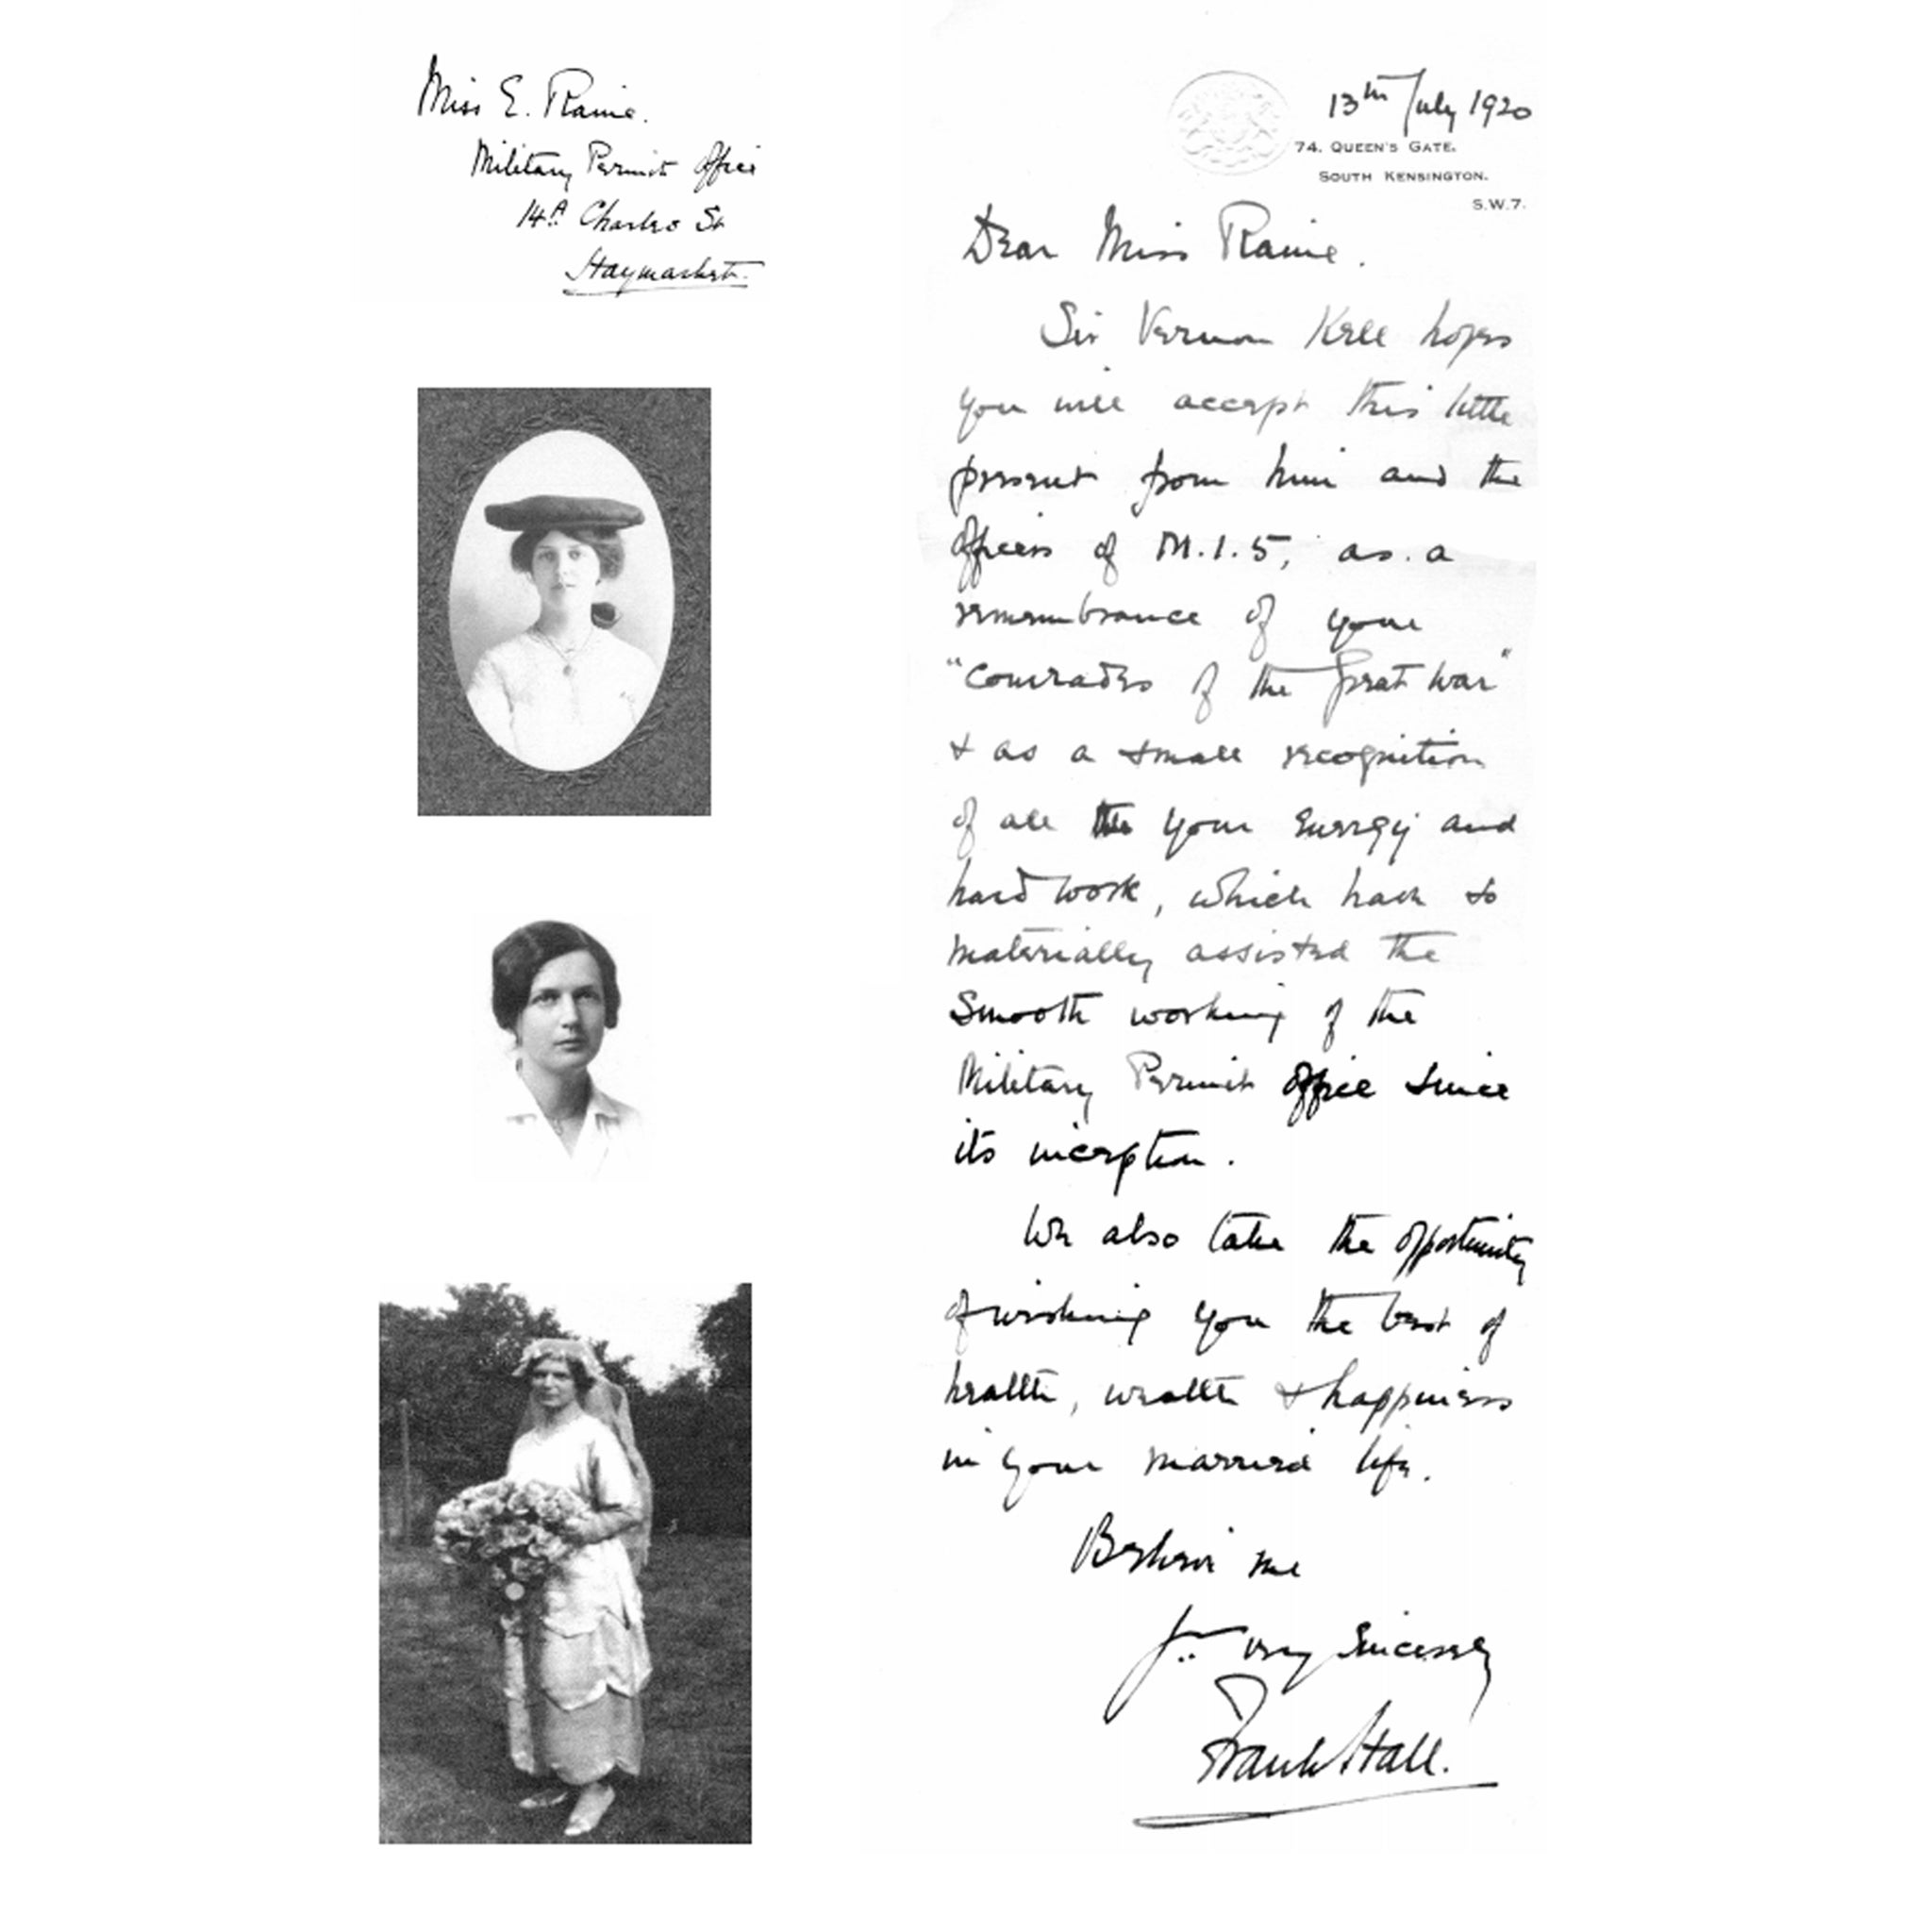 Miss E. Raine.
Military Permit Office
14A Charles St
Haymarket.
13th July 1920
74, QUEEN'S GATE,
SOUTH KENSINGTON.
S.W.7.
Dear Miss Raine.
Sir Vernon Kell hopes
you will accept this little
present from him and the
officers of M.I.5, as a
remembrance of your
"Comrades of the Great War"
& as a small recognition
of all your energy and
hard work, which have so
materially assisted the
smooth working of the
Military Permit Office since
its inception.
We also take the opportunity
of wishing you the best of
health, wealth & happiness
in your married life.
Believe me
Yrs very sincerely
Frank Hall.